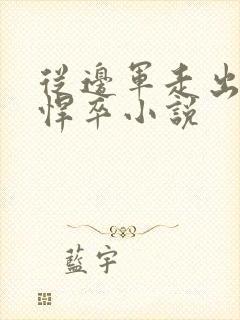 從邊軍走出
悍卒小說
藍宇